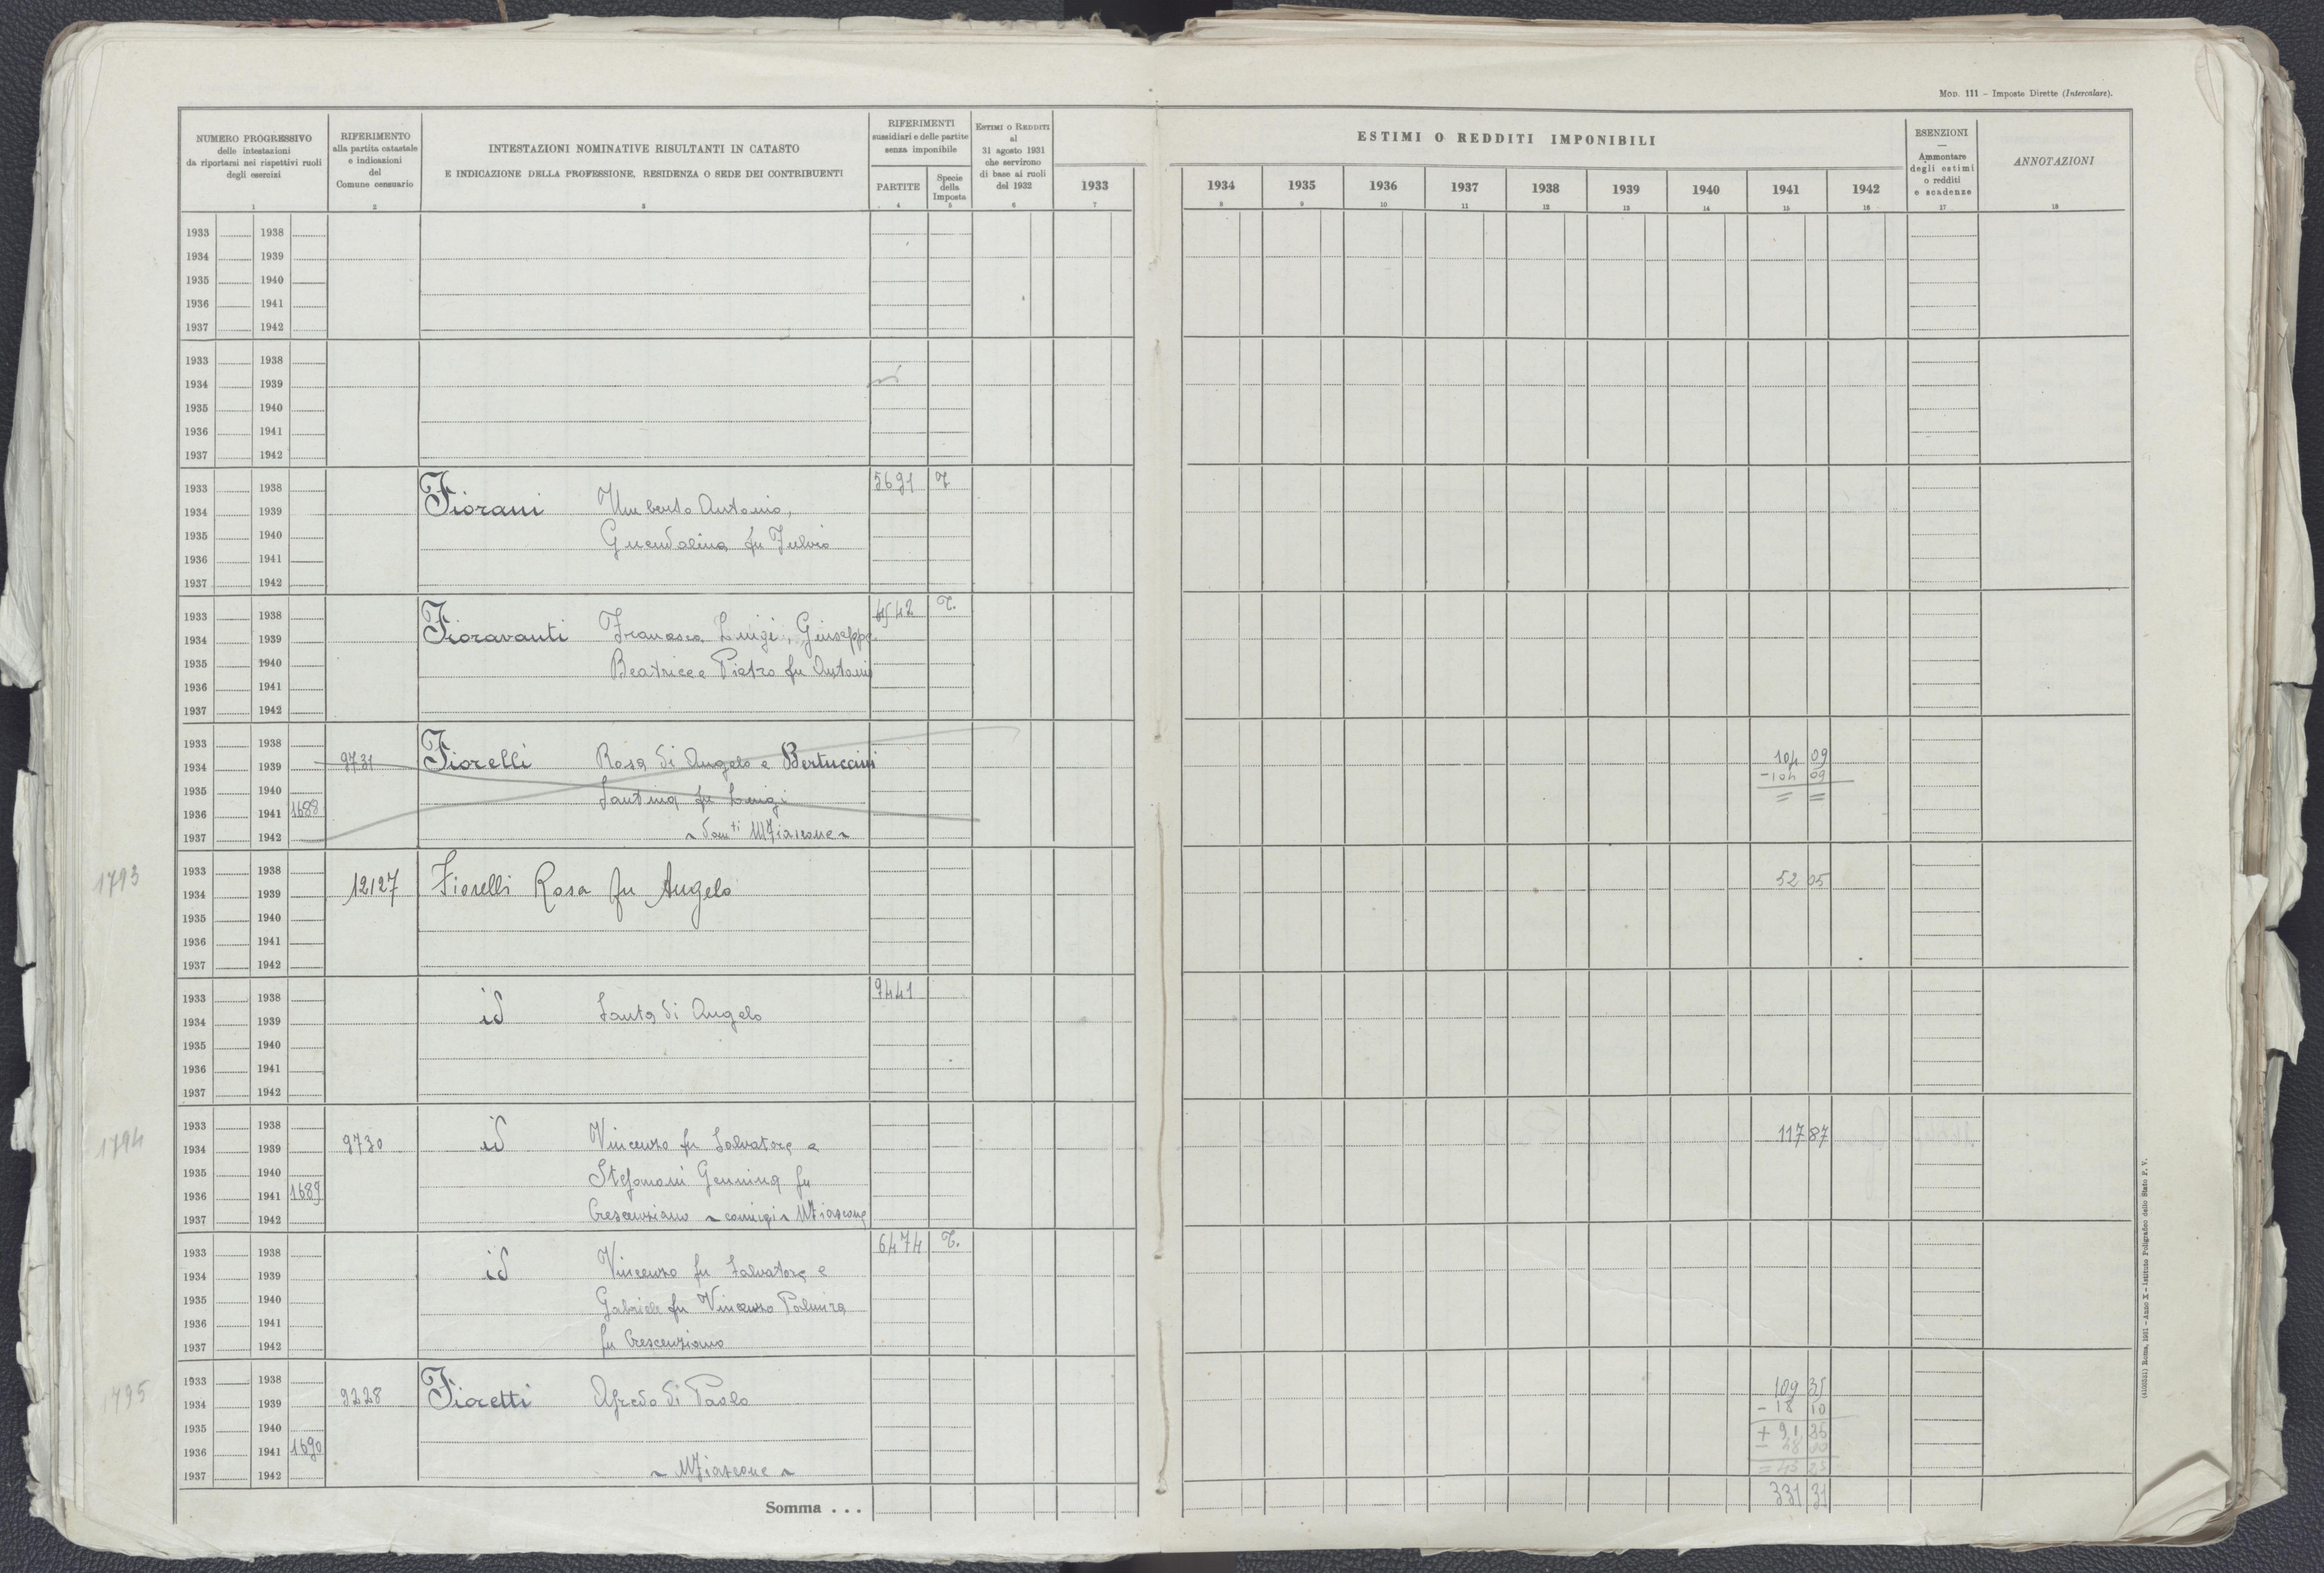 MOD. 111 – Imposte Dirette (Intercalare).
NUMERO PROGRESSIVO
delle intestazioni
da riportarsi nei rispettivi ruoli
degli esercizi
1
RIFERIMENTO
alla partita catastale
e indicazioni
del
Comune censuario
2
INTESTAZIONI NOMINATIVE RISULTANTI IN CATASTO
E INDICAZIONE DELLA PROFESSIONE, RESIDENZA O SEDE DEI CONTRIBUENTI
3
RIFERIMENTI
sussidiari e delle partite
senza imponibile
PARTITE
4
Specie
della
Imposta
5
ESTIMI O REDDITI
al
31 agosto 1931
che servirono
di base ai ruoli
del 1932
6
ESTIMI O REDDITI IMPONIBILI
1933 1934 1935 1936 1937 1938 1939 1940 1941 1942
7 8 9 10 11 12 13 14 15 16
ESENZIONI
—
Ammontare
degli estimi
o redditi
e scadenze
17
ANNOTAZIONI
18
1933 1938
1934 1939
1935 1940
1936 1941
1937 1942
1933 1938
1934 1939
1935 1940
1936 1941
1937 1942
1933 1938 5691 T
1934 1939 Fiorani Umberto Antonio,
1935 1940 Guendalina fu Fulvio
1936 1941
1937 1942
1933 1938 4542 T.
1934 1939 Fioravanti Francesco Luigi, Giuseppe
1935 1940 Beatrice e Pietro fu Antonio
1936 1941
1937 1942
1933 1938
1934 1939 9731 Fiorelli Rosa di Angelo e Bertuccini 104 09
1935 1940 Santina fu Luigi - 104 09
1936 1941 1688 = =
1937 1942 M Fiascone
1933 1938
1793 1934 1939 12127 Fiorelli Rosa fu Angelo 52 05
1935 1940
1936 1941
1937 1942
1933 1938 9441
1934 1939 id Santa di Angelo
1935 1940
1936 1941
1937 1942
1933 1938
1794 1934 1939 9730 id Vincenzo fu Salvatore e 117 87
1935 1940 Stefanoni Gennina fu
1936 1941 1689
1937 1942 Crescenziano ~ coniugi ~ M Fiascone
1933 1938 6474 T.
1934 1939 id Vincenzo fu Salvatore e
1935 1940 Gabriele fu Vincenzo Palmira
1936 1941
1937 1942 fu Crescenziano
1933 1938
1795 1934 1939 9228 Fioretti Alfredo di Paolo 109 35
1935 1940 - 18 10
1936 1941 1690 + 91 25
1937 1942 ~ M Fiascone ~ - 48 00
= 43 25
Somma . . . 331 31
(4103531) Roma, 1931 – Anno X – Istituto Poligrafico dello Stato P. V.